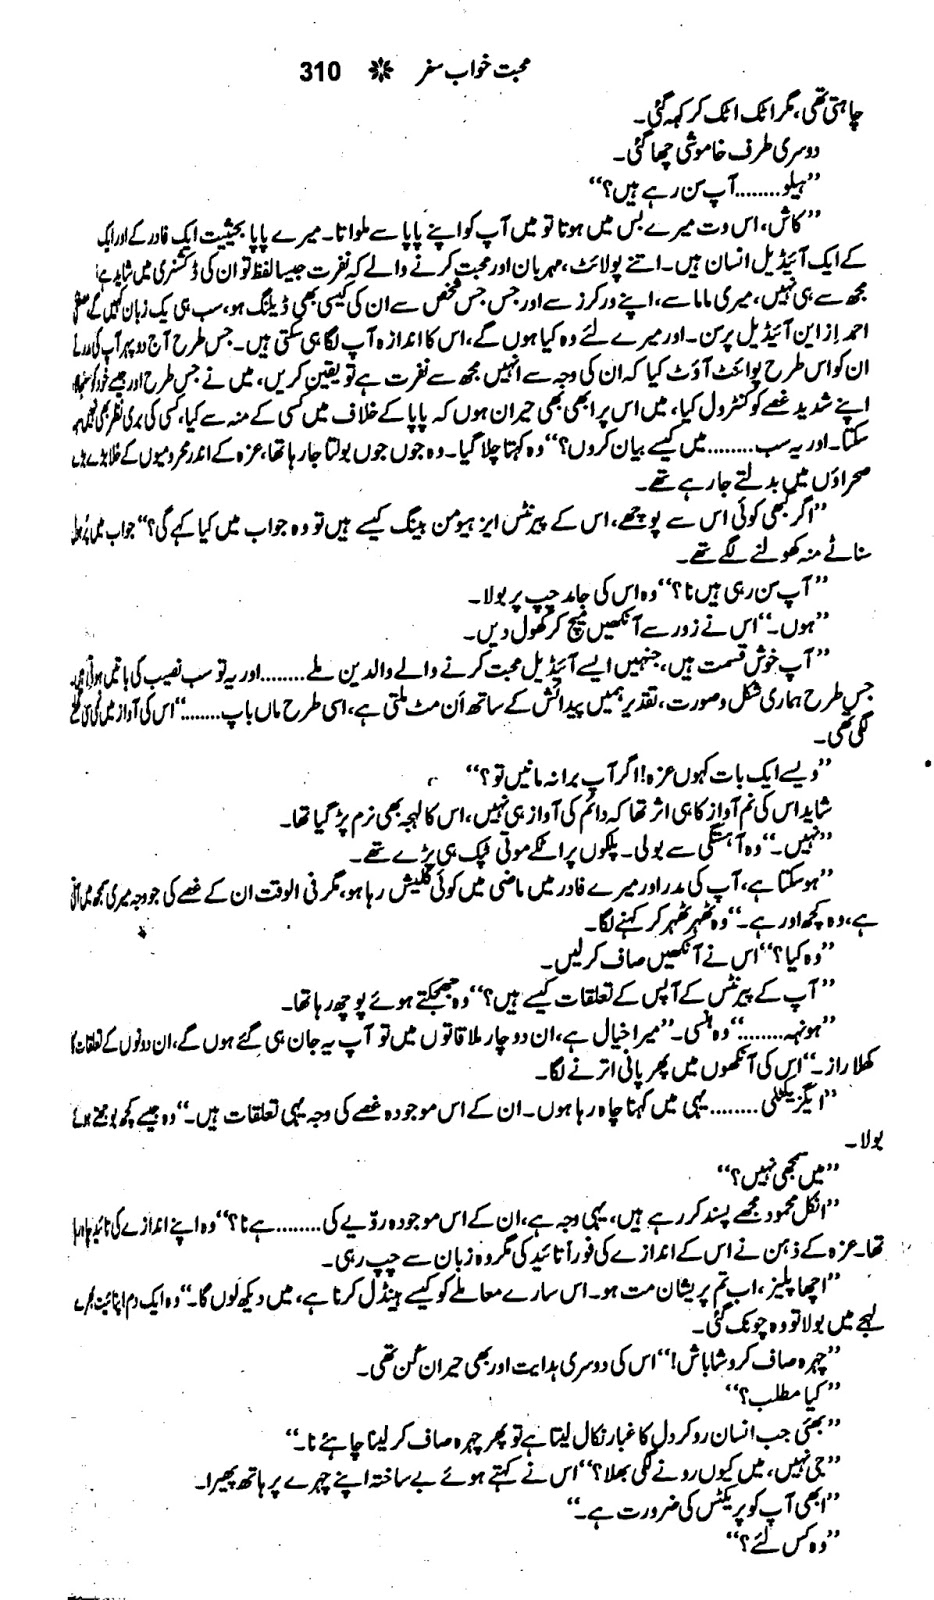 محبت خواب سفر ❋ 310
چاہتی تھی، مگر اٹک اٹک کر کہہ گئی۔
دوسری طرف خاموشی چھا گئی۔
”ہیلو........آپ سن رہے ہیں؟“
”کاش، اس وت میرے بس میں ہوتا تو میں آپ کو اپنے پاپا سے ملواتا۔ میرے پاپا بحیثیت ایک فادر کے اور ایک
کے ایک آئیڈیل انسان ہیں۔ اتنے پولائٹ، مہربان اور محبت کرنے والے کہ نفرت جیسا لفظ تو ان کی ڈکشنری میں شاید ہے
مجھ سے ہی نہیں، میری ماما سے، اپنے ورکرز سے اور جس جس شخص سے ان کی کیسی بھی ڈیلنگ ہو، سب ہی یک زبان کہیں گے
احمد از این آئیڈیل پرسن۔ اور میرے لئے وہ کیا ہوں گے، اس کا اندازہ آپ لگا ہی سکتی ہیں۔ جس طرح آج دوپہر آپ کی مدر نے
ان کو اس طرح پوائنٹ آؤٹ کیا کہ ان کی وجہ سے انہیں مجھ سے نفرت ہے تو یقین کریں، میں نے جس طرح اور جیسے خود کو سنبھالا
اپنے شدید غصے کو کنٹرول کیا، میں اس پر ابھی بھی حیران ہوں کہ پاپا کے خلاف میں کسی کے منہ سے کیا، کسی کی بری نظر بھی نہیں سہہ
سکتا۔ اور یہ سب........میں کیسے بیان کروں؟“ وہ کہتا چلا گیا۔ وہ جوں جوں بولتا جا رہا تھا، عزہ کے اندر محرومیوں کے خلا بڑے بڑے
صحراؤں میں بدلتے جا رہے تھے۔
”اگر کبھی کوئی اس سے پوچھے، اس کے پیرنٹس ایز ہیومن بینگ کیسے ہیں تو وہ جواب میں کیا کہے گی؟“ جواب میں پُرہول
سناٹے منہ کھولنے لگے تھے۔
”آپ سن رہی ہیں نا؟“ وہ اس کی جامد چپ پر بولا۔
”ہوں۔“ اس نے زور سے آنکھیں میچ کر کھول دیں۔
”آپ خوش قسمت ہیں، جنہیں ایسے آئیڈیل محبت کرنے والے والدین ملے........اور یہ تو سب نصیب کی باتیں ہوتی ہیں۔
جس طرح ہماری شکل و صورت، تقدیر ہمیں پیدائش کے ساتھ اَن مٹ ملتی ہے، اسی طرح ماں باپ........“ اس کی آواز میں نمی سی گھلنے
لگی تھی۔
”ویسے ایک بات کہوں عزہ! اگر آپ برا نہ مانیں تو؟“
شاید اس کی نم آواز کا ہی اثر تھا کہ دائم کی آواز ہی نہیں، اس کا لہجہ بھی نرم پڑ گیا تھا۔
”نہیں۔“ وہ آہستگی سے بولی۔ پلکوں پر اٹکے موتی ٹپک ہی پڑے تھے۔
”ہو سکتا ہے، آپ کی مدر اور میرے فادر میں ماضی میں کوئی کلیش رہا ہو، مگر فی الوقت ان کے غصے کی جو وجہ میری سمجھ میں آئی
ہے، وہ کچھ اور ہے۔“ وہ ٹھہر ٹھہر کر کہنے لگا۔
”وہ کیا؟“ اس نے آنکھیں صاف کر لیں۔
”آپ کے پیرنٹس کے آپس کے تعلقات کیسے ہیں؟“ وہ جھجکتے ہوئے پوچھ رہا تھا۔
”ہونہہ........“ وہ ہنسی۔ ”میرا خیال ہے، ان دو چار ملاقاتوں میں تو آپ یہ جان ہی گئے ہوں گے، ان دونوں کے تعلقات کا
کھلا راز۔“ اس کی آنکھوں میں پھر پانی اترنے لگا۔
”ایگزیکٹلی........یہی میں کہنا چاہ رہا ہوں۔ ان کے اس موجودہ غصے کی وجہ یہی تعلقات ہیں۔“ وہ جیسے کچھ بوجھتے ہوئے
بولا۔
”میں سمجھی نہیں؟“
”انکل محمود مجھے پسند کر رہے ہیں، یہی وجہ ہے، ان کے اس موجودہ رویّے کی........ہے نا؟“ وہ اپنے اندازے کی تائید چاہ رہا
تھا۔ عزہ کے ذہن نے اس کے اندازے کی فوراً تائید کی مگر وہ زبان سے چپ رہی۔
”اچھا پلیز، اب تم پریشان مت ہو۔ اس سارے معاملے کو کیسے ہینڈل کرنا ہے، میں دیکھ لوں گا۔“ وہ ایک دم اپنائیت بھرے
لہجے میں بولا تو وہ چونک گئی۔
”چہرہ صاف کرو شاباش!“ اس کی دوسری ہدایت اور بھی حیران کُن تھی۔
”کیا مطلب؟“
”بھئی جب انسان رو کر دل کا غبار نکال لیتا ہے تو پھر چہرہ صاف کر لینا چاہئے نا۔“
”جی نہیں، میں کیوں رونے لگی بھلا؟“ اس نے کہتے ہوئے بے ساختہ اپنے چہرے پر ہاتھ پھیرا۔
”ابھی آپ کو پریکٹس کی ضرورت ہے۔“
”وہ کس لئے؟“